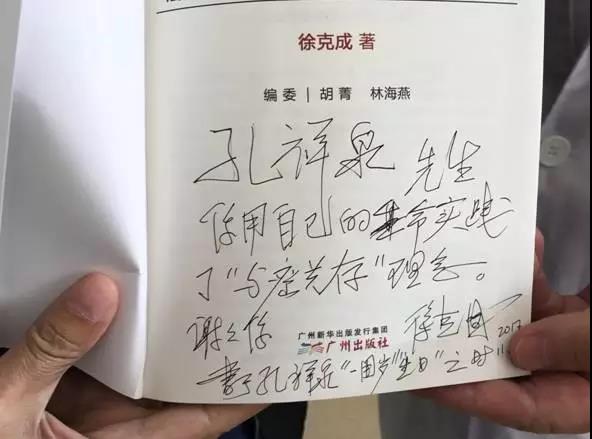 徐克成 著
编委 | 胡菁 林海燕
孔祥泉 先生
你用自己的生命实践
了“与癌共存”理念。
谢谢你
广州新华出版发行集团
广州出版社
徐克成
2017
书于孔祥泉“一周岁”生日”之时